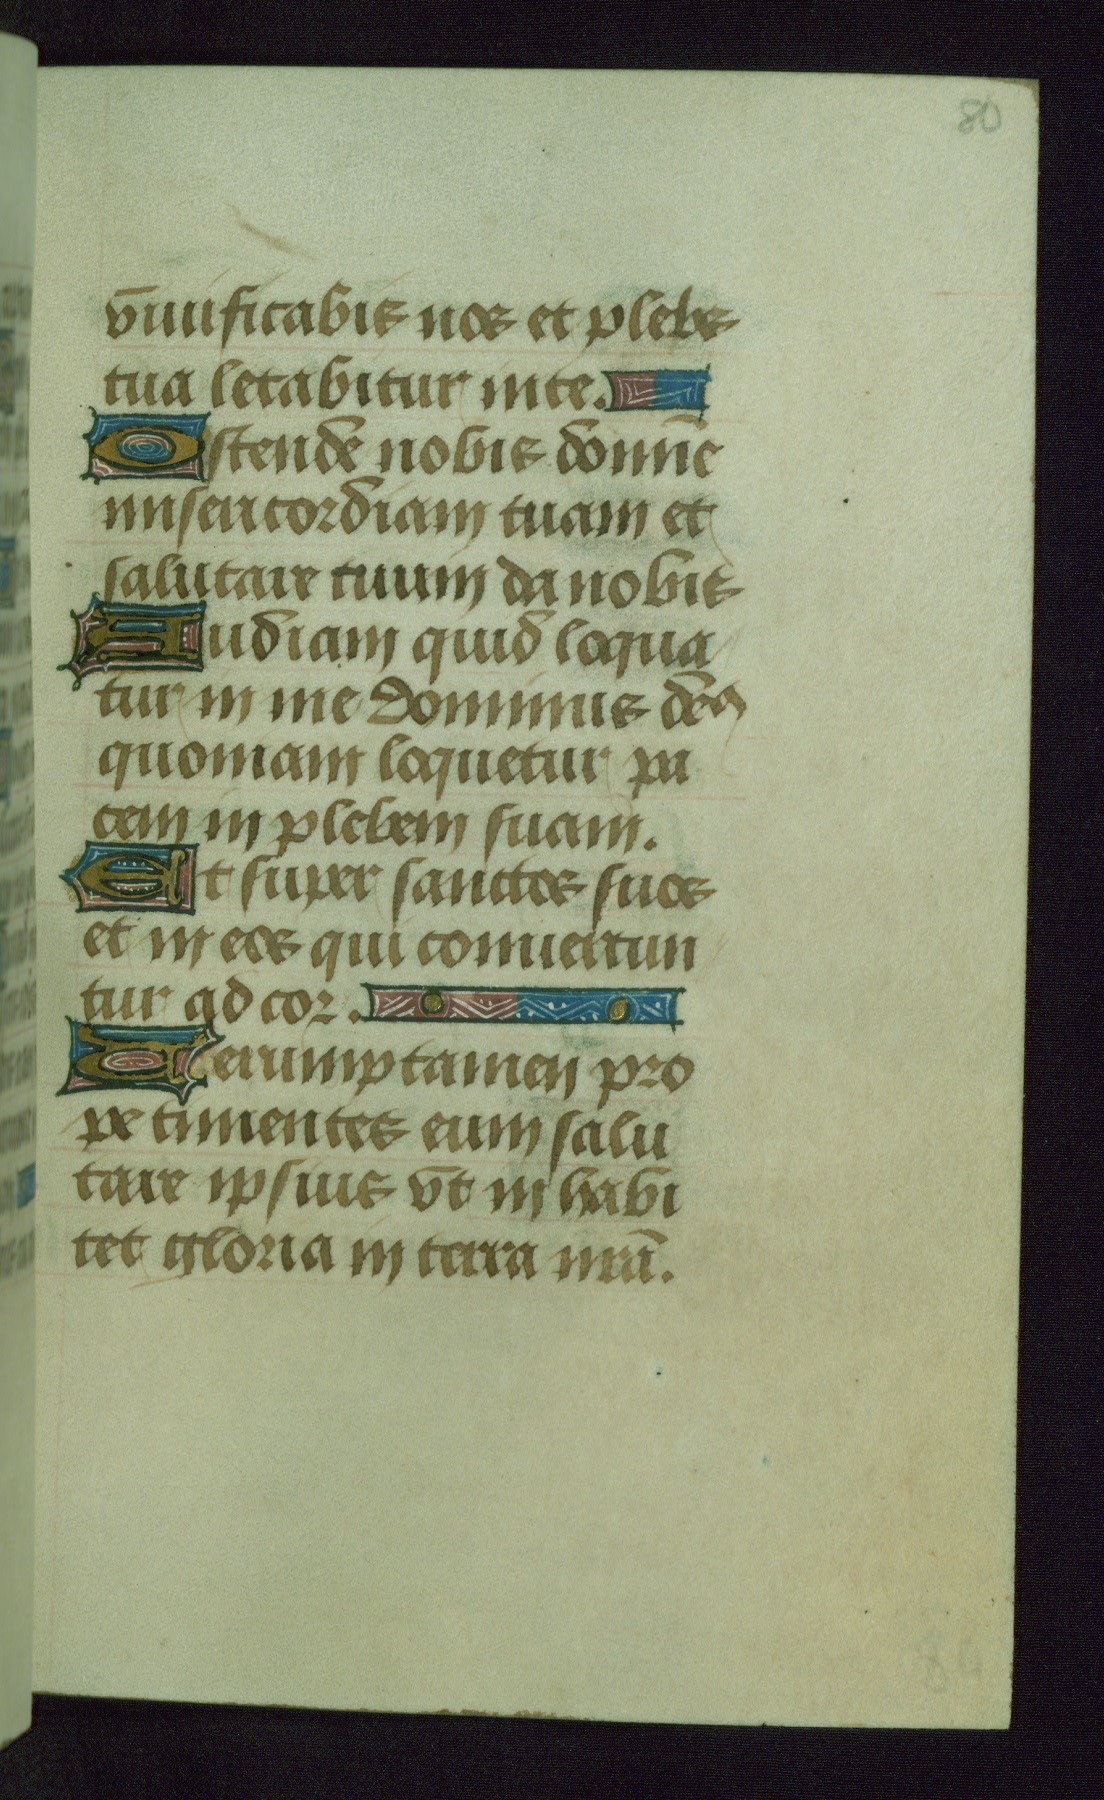 80
viuificabis nos et plebs
tua letabitur in te.
Ostende nobis domine
misericordiam tuam et
salutare tuum da nobis
Audiam quid loqua
tur in me dominus deus
quoniam loquetur pa
cem in plebem suam.
Et super sanctos suos
et in eos qui conuertun
tur ad cor.
Verumptamen pro
pe timentes eum salu
tare ipsius vt inhabi
tet gloria in terra nrã.